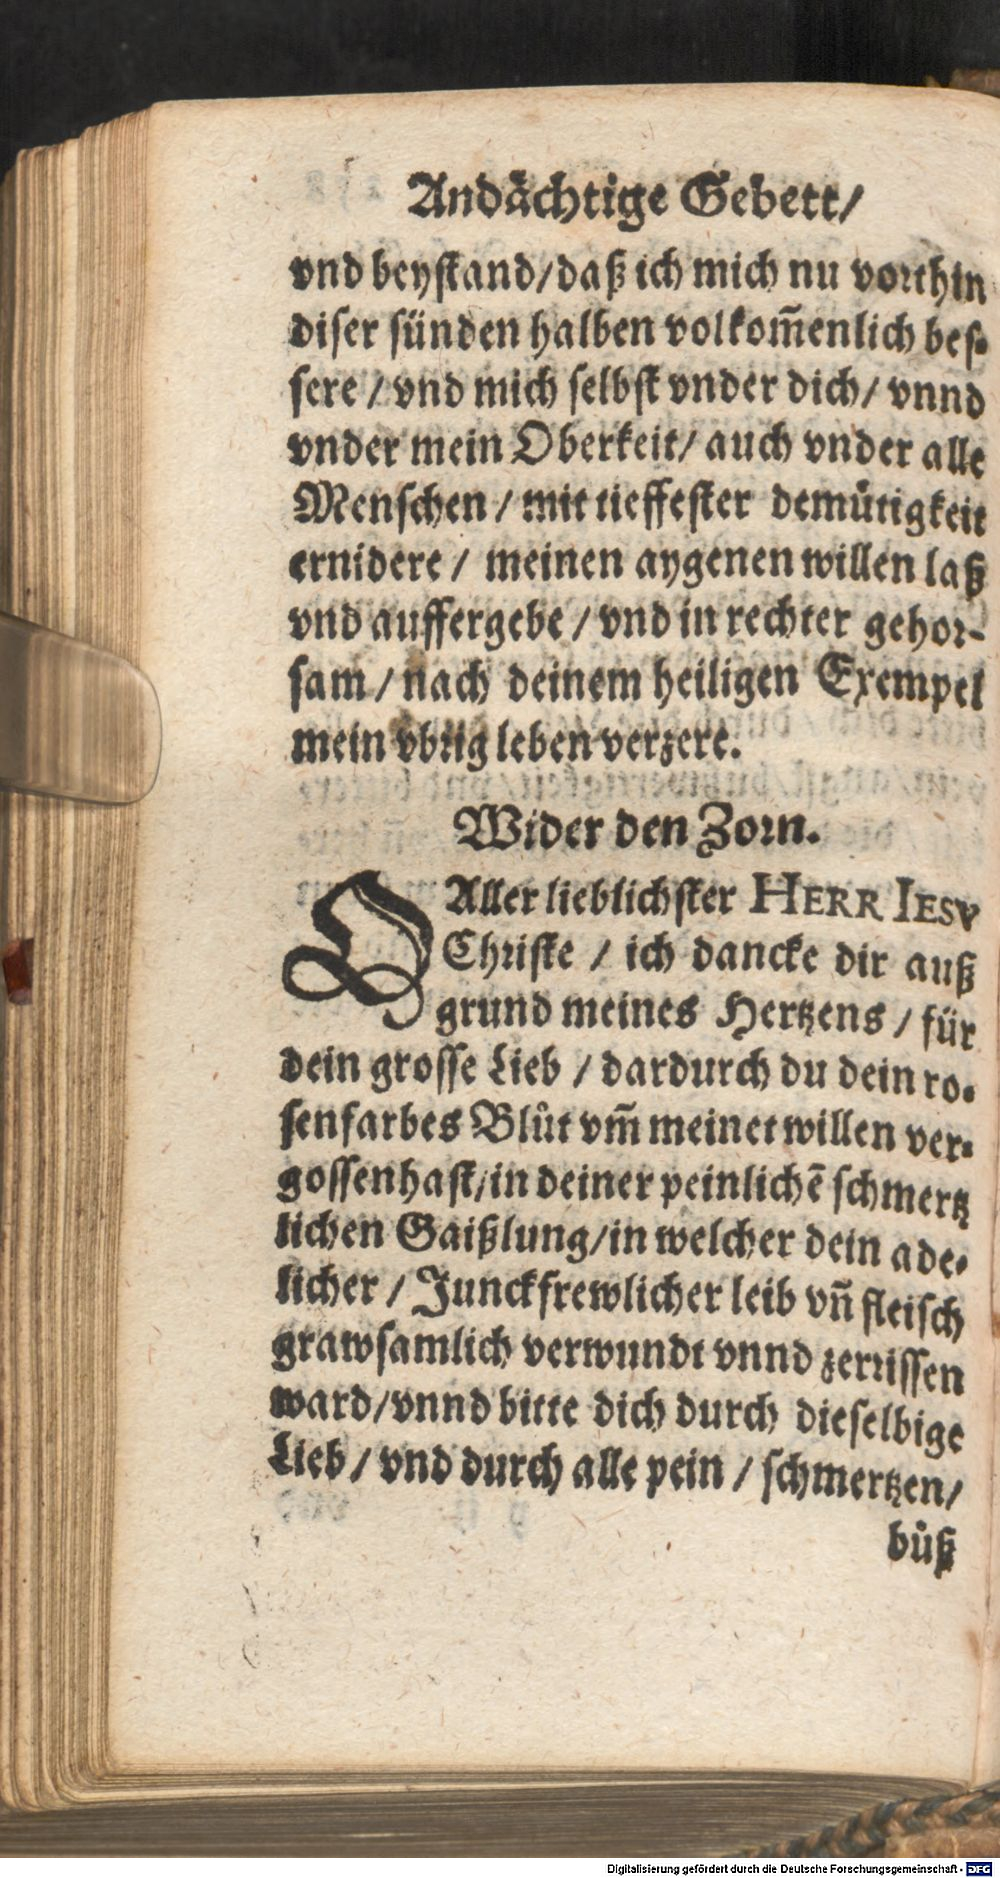 Andächtige Gebett/
vnd beystand/daß ich mich nu vorthin
diser sünden halben volkom̃enlich bes-
sere / vnd mich selbst vnder dich/ vnnd
vnder mein Oberkeit/ auch vnder alle
Menschen / mit tieffester demütigkeit
ernidere / meinen aygenen willen laß
vnd auffergebe / vnd in rechter gehor-
sam / nach deinem heiligen Exempel
mein vbrig leben verzere.
Wider den Zorn.
O Aller lieblichster HERR IESV
Christe / ich dancke dir auß
grund meines Hertzens / für
dein grosse Lieb / dardurch du dein ro-
senfarbes Blůt vm̃ meinet willen ver-
gossen hast/in deiner peinlichẽ schmertz
lichen Gaißlung/in welcher dein ade-
licher / Junckfrewlicher leib vñ fleisch
grawsamlich verwundt vnnd zerrissen
ward/vnnd bitte dich durch dieselbige
Lieb / vnd durch alle pein / schmertzen/
bůß
Digitalisierung gefördert durch die Deutsche Forschungsgemeinschaft - DFG